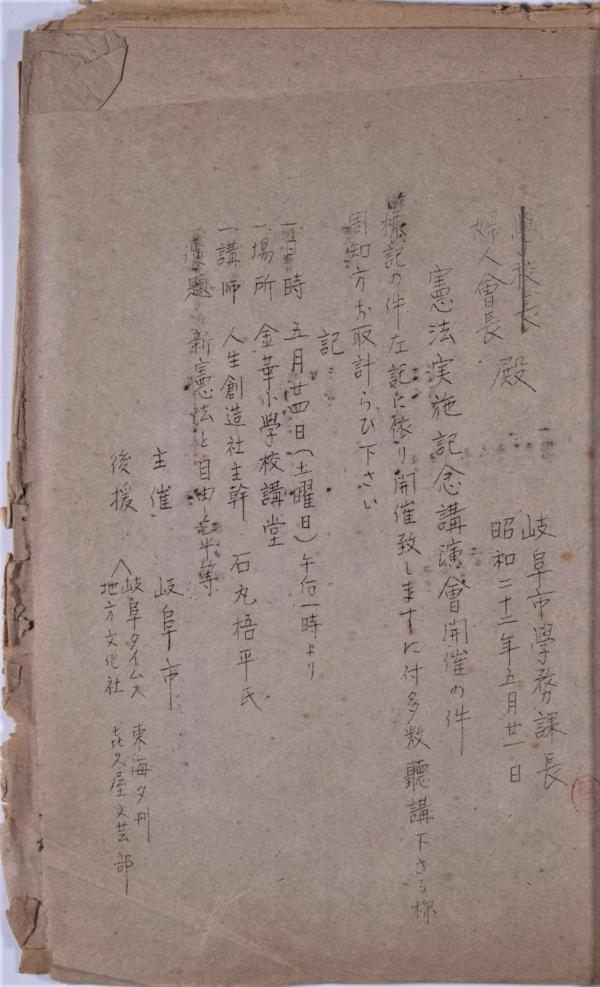 岐阜市學務課長
昭和二十二年五月廿一日
學校長
婦人會長 殿
憲法実施記念講演會開催の件
標記の件左記に依り開催致しますに付多数聽講下さる様
周知方お取計らひ下さい
記
一、日時 五月廿四日(土曜日)午后一時より
一、場所 金華小學校講堂
一、講師 人生創造社主幹 石丸梧平氏
一、演題 新憲法と自由と平等
主催 岐阜市
後援 岐阜タイムス 東海夕刊
地方文化社 㐂久屋文芸部